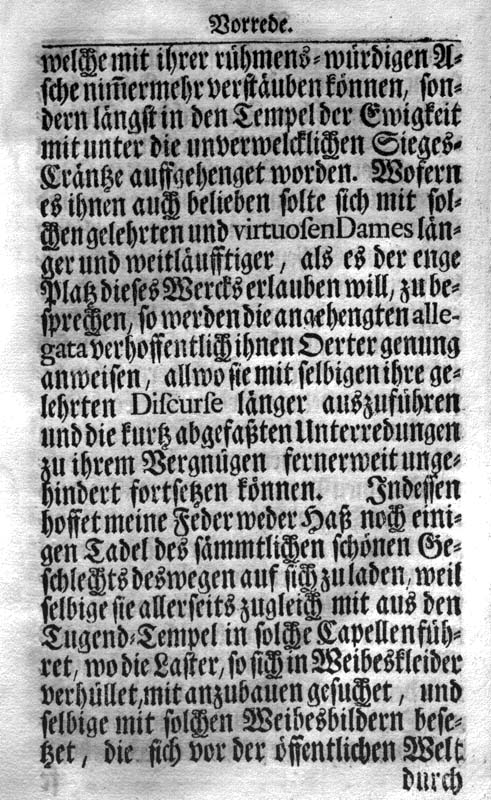 Vorrede.
welche mit ihrer rühmens-würdigen A-
sche nim̃ermehr verstäuben können, son-
dern längst in den Tempel der Ewigkeit
mit unter die unverwelcklichen Sieges-
Cräntze auffgehenget worden. Wofern
es ihnen auch belieben solte sich mit sol-
chen gelehrten und virtuosen Dames län-
ger und weitläufftiger, als es der enge
Platz dieses Wercks erlauben will, zu be-
sprechen, so werden die angehengten alle-
gata verhoffentlich ihnen Oerter genung
anweisen, allwo sie mit selbigen ihre ge-
lehrten Discurse länger auszuführen
und die kurtz abgefaßten Unterredungen
zu ihrem Vergnügen fernerweit unge-
hindert fortsetzen können. Indessen
hoffet meine Feder weder Haß noch eini-
gen Tadel des sämmtlichen schönen Ge-
schlechts deswegen auf sich zu laden, weil
selbige sie allerseits zugleich mit aus den
Tugend-Tempel in solche Capellen füh-
ret, wo die Laster, so sich in Weibeskleider
verhüllet, mit anzubauen gesuchet, und
selbige mit solchen Weibesbildern bese-
tzet, die sich vor der öffentlichen Welt
durch